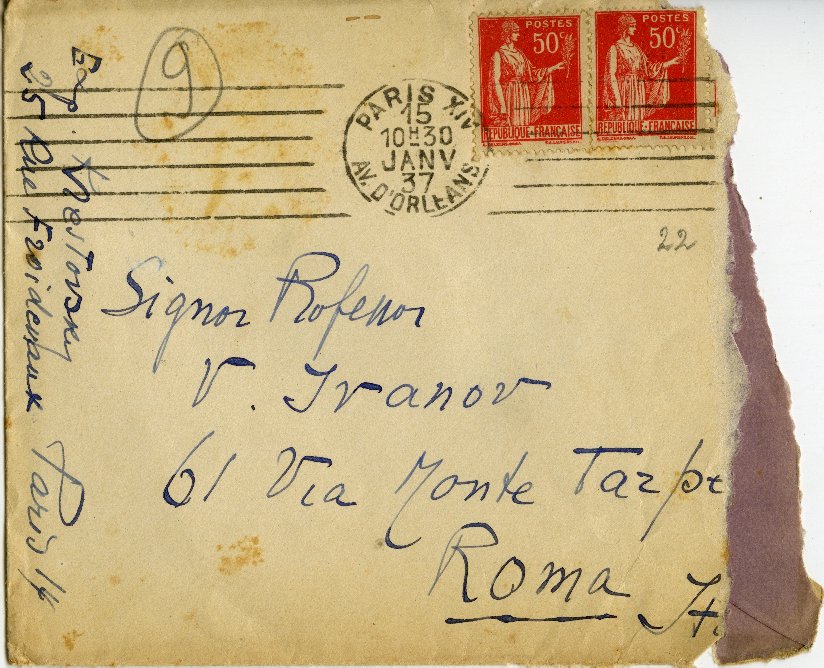 POSTES
50c
REPUBLIQUE•FRANÇAISE
POSTES
50c
REPUBLIQUE•FRANÇAISE
PARIS XIV
15
10H30
JANV
37
AV. D'ORLEANS
9
22
Exp. Krestovsky
25 Rue Froidevaux Paris 14
Signor Professor
V. Ivanov
61 Via Monte Tarpe
Roma